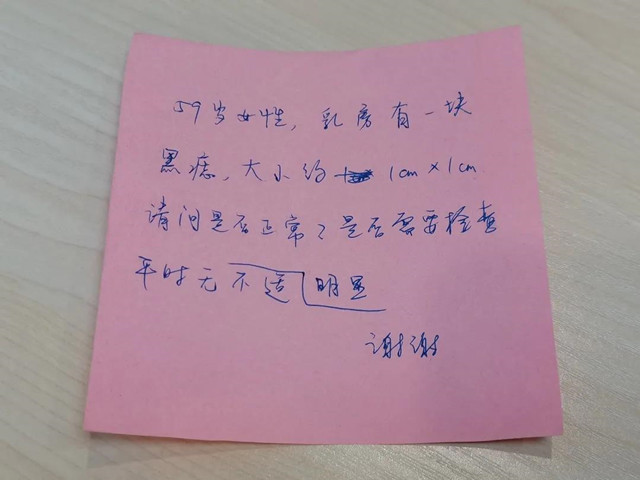 59岁女性，乳房有一块
黑痣，大小约 1cm×1cm
请问是否正常？是否需要检查
平时无不适明显
谢谢